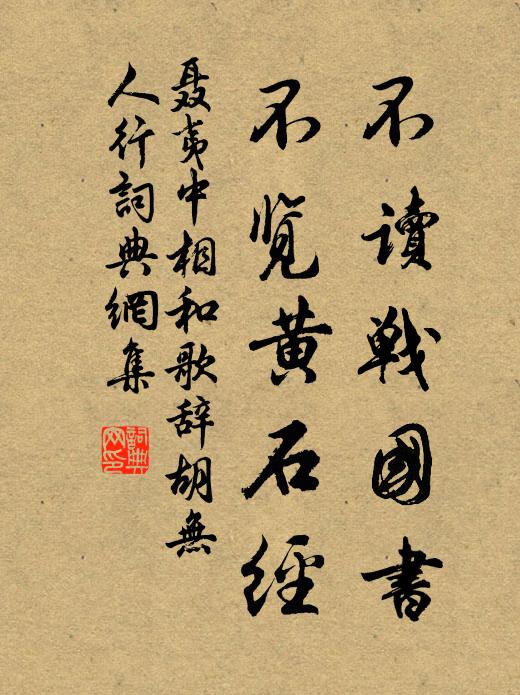 不讀戰國書
不览黄石經
聂夷中相和歌辞胡無
人行詞典網集
詞典網印